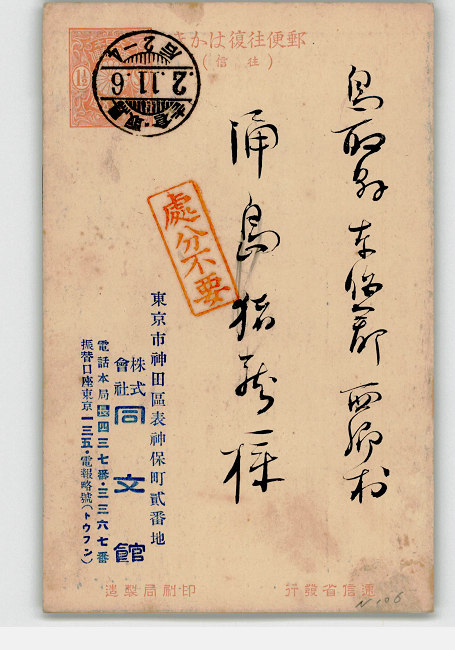 郵便往復はがき
(往信)
鳥取縣東伯郡西郷村
涌島猪蔵様
處分不要
東京市神田區表神保町貳番地
株式會社同文館
電話本局長四三七番・三三六七番
振替口座東京一三五・電報略號(トウフン)
2.11.6
造製局刷印
行發省信遞
N106